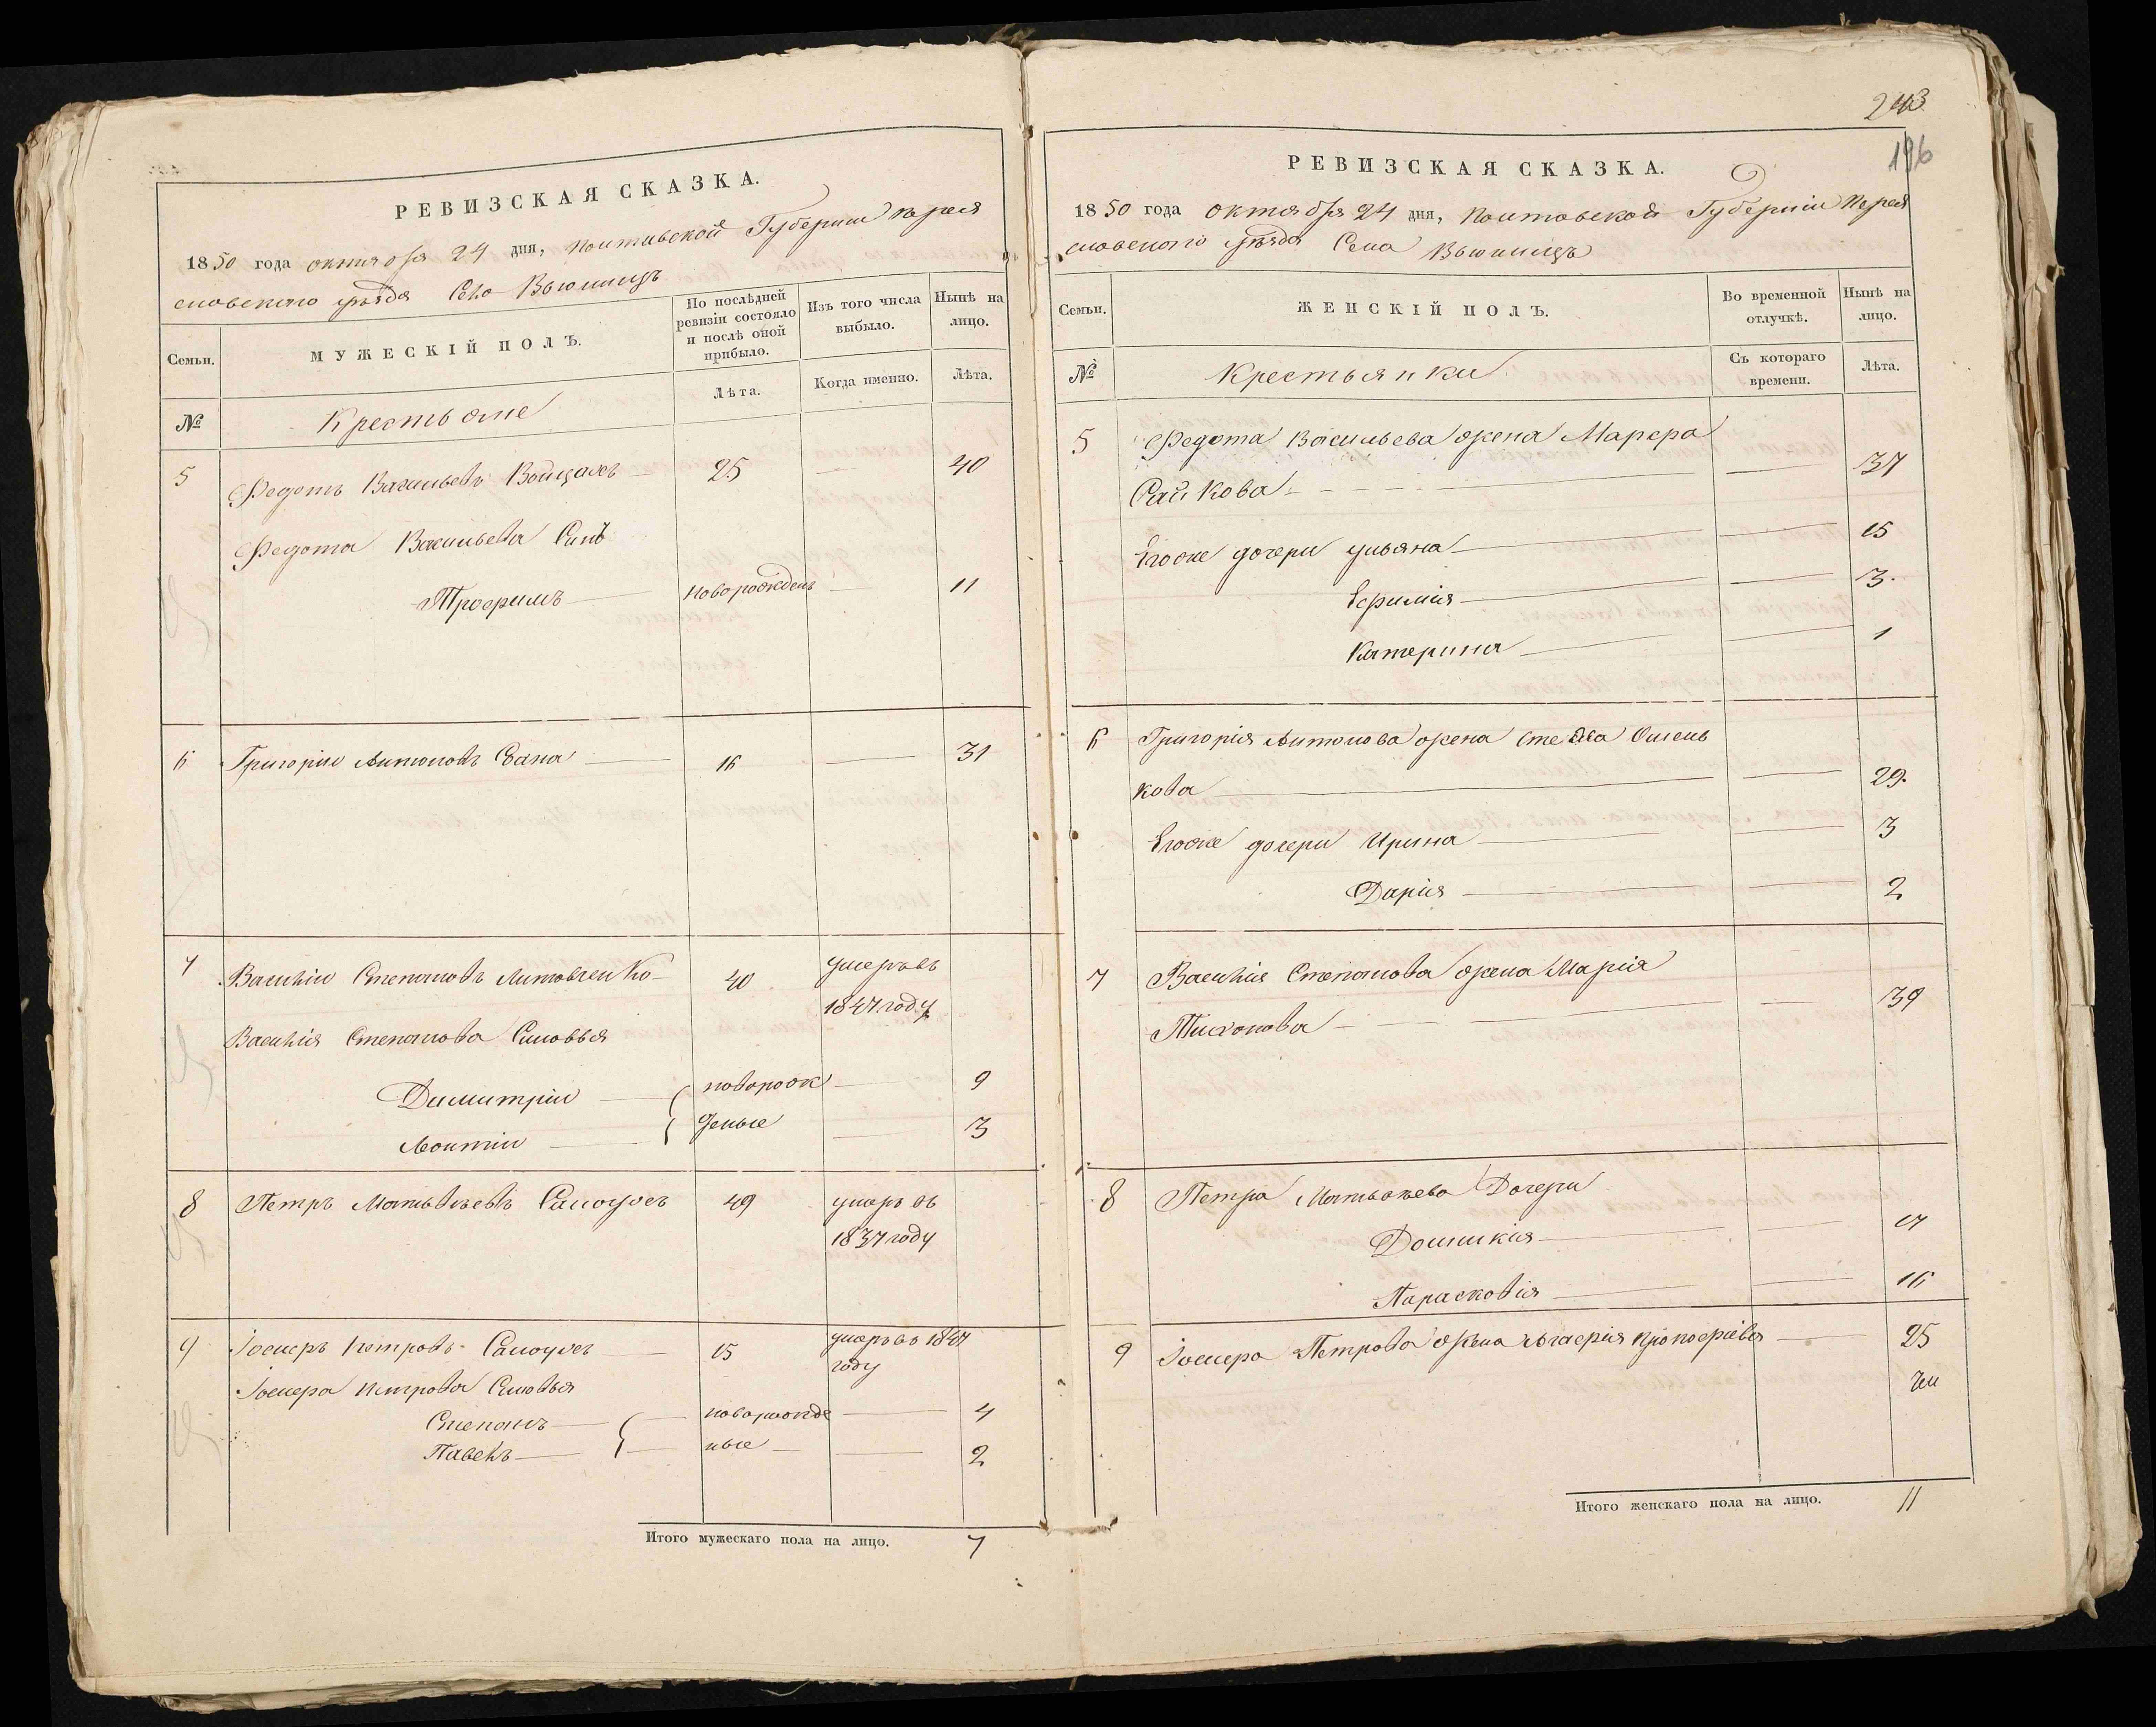 РЕВИЗСКАЯ СКАЗКА.
1850 года октября 24 дня, Полтавской Губернии Перея
славского уѣзда Село Вьюнищъ
Семьи.
МУЖЕСКІЙ ПОЛЪ.
По послѣдней ревизіи состояло и послѣ оной прибыло.
Изъ того числа выбыло.
Нынѣ на лицо.
№
Крестьяне
Лѣта.
Когда именно.
Лѣта.
5 Федотъ Васильевъ 25 — 40
Федота Васильева Синъ
Трофимъ — новорожденъ — 11
6 Григорій Антоновъ — 16 — 31
7 Василій Степановъ Литовченко 40 умеръ въ
1847 году
Василія Степанова Синовья
Димитрій — новорож — 9
Леонтій — деные — 3
8 Петръ Матвѣевъ 49 умеръ въ
1837 году
9 Іосифъ Петровъ — 15 умеръ въ 1847
году
Іосифа Петрова Синовья
Степанъ — новорожде — 4
Павелъ — ные — 2
Итого мужескаго пола на лицо. 7
243
196
РЕВИЗСКАЯ СКАЗКА.
1850 года октября 24 дня, Полтавской Губерніи Перея
славского уѣзда Села Вьюнищъ
Семьи.
ЖЕНСКІЙ ПОЛЪ.
Во временной отлучкѣ.
Нынѣ на лицо.
№
Крестьянки
Съ котораго времени.
Лѣта.
5 Федота Васильева жена Марфа
Савкова — — 37
Егоже дочери Ульяна — — 15
Ефимія — — 3.
Катерина — — 1
6 Григорія Антонова жена
кова — — 29.
Егоже дочери Ирина — — 3
Дарія — — 2
7 Василія Степанова жена Марія
Тихонова — — 39
8 Петра Матвѣева Дочери
Домникія — — 17
Парасковія — — 16
9 Іосифа Петрова жена Прокофіева — 25
Итого женскаго пола на лицо. 11